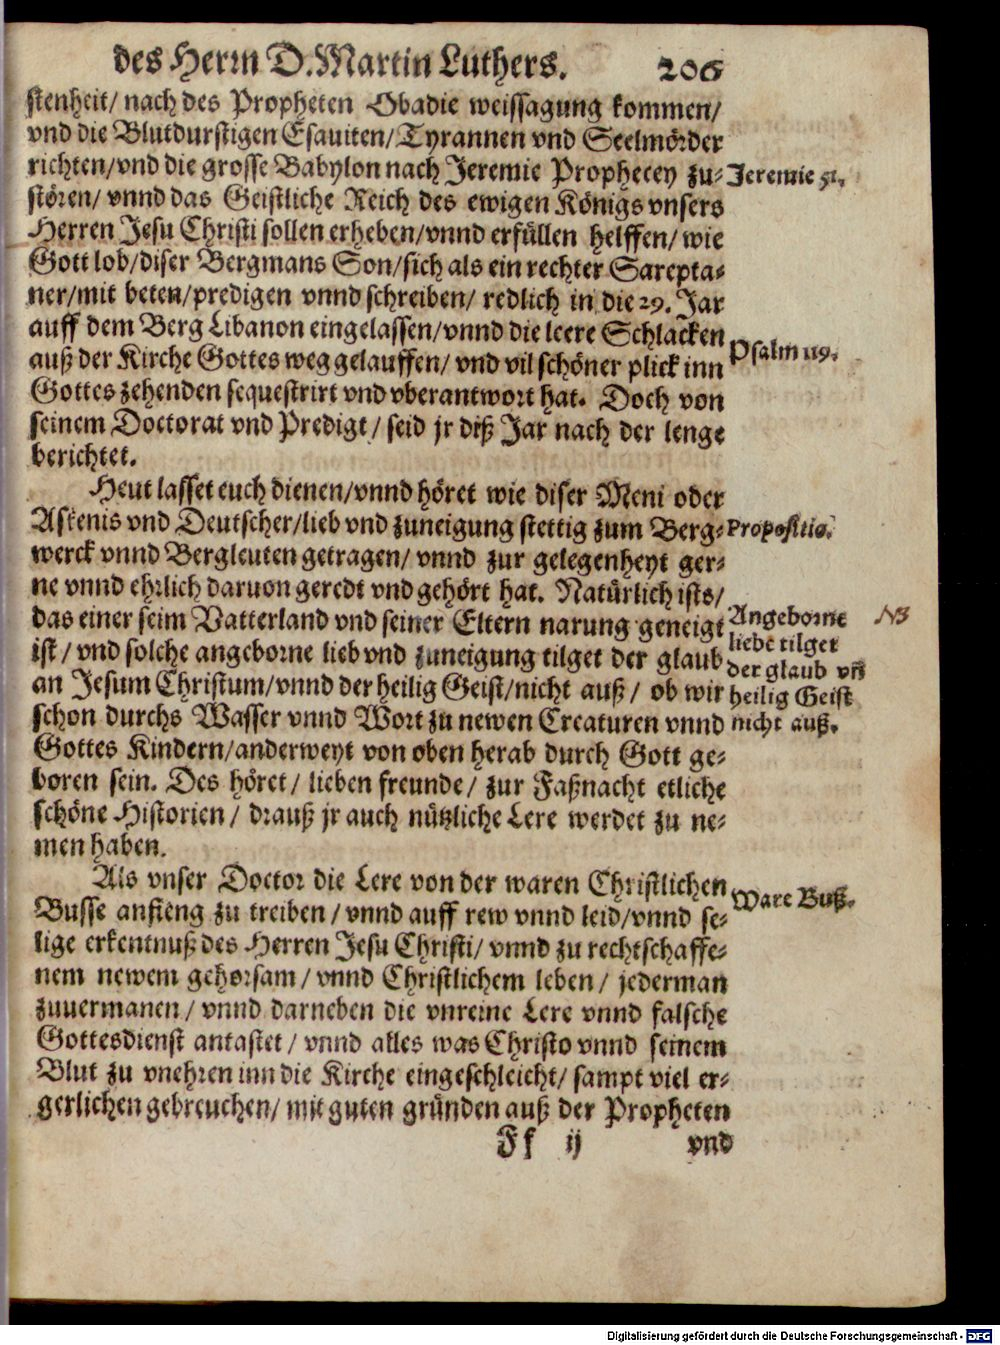 des Herrn D. Martin Luthers. 206
stenheit/ nach des Propheten Obadie weissagung kommen/
vnd die Blutdurstigen Esauiten/ Tyrannen vnd Seelmörder
richten/ vnd die grosse Babylon nach Jeremie Prophecey zu-
Jeremie 51.
stören/ vnnd das Geistliche Reich des ewigen Königs vnsers
Herren Jesu Christi sollen erheben/ vnnd erfüllen helffen/ wie
Gott lob/ diser Bergmans Son/ sich als ein rechter Sarepta-
ner/ mit beten/ predigen vnnd schreiben/ redlich in die 29. Jar
auff dem Berg Libanon eingelassen/ vnnd die leere Schlacken
Psalm 119.
auß der Kirche Gottes weg gelauffen/ vnd vil schöner plick inn
Gottes zehenden sequestrirt vnd vberantwort hat. Doch von
seinem Doctorat vnd Predigt/ seid jr diß Jar nach der lenge
berichtet.
Heut lasset euch dienen/ vnnd höret wie diser Meni oder
Askenis vnd Deutscher/ lieb vnd zuneigung stettig zum Berg-
Propositio.
werck vnnd Bergleuten getragen/ vnnd zur gelegenheyt ger-
ne vnnd ehrlich daruon geredt vnd gehört hat. Natürlich ists/
das einer seim Vatterland vnd seiner Eltern narung geneigt
ist/ vnd solche angeborne lieb vnd zuneigung tilget der glaub
an Jesum Christum/ vnnd der heilig Geist/ nicht auß/ ob wir
schon durchs Wasser vnnd Wort zu newen Creaturen vnnd
Angeborne
liebe tilget
der glaub vñ
heilig Geist
nicht auß.
NB
Gottes Kindern/ anderweyt von oben herab durch Gott ge-
boren sein. Des höret/ lieben freunde/ zur Faßnacht etliche
schöne Historien/ drauß jr auch nützliche Lere werdet zu ne-
men haben.
Als vnser Doctor die Lere von der waren Christlichen
Ware Buß.
Busse anfieng zu treiben/ vnnd auff rew vnnd leid/ vnnd se-
lige erkentnuß des Herren Jesu Christi/ vnnd zu rechtschaffe-
nem newem gehorsam/ vnnd Christlichem leben/ jederman
zuuermanen/ vnnd darneben die vnreine Lere vnnd falsche
Gottesdienst antastet/ vnnd alles was Christo vnnd seinem
Blut zu vnehren inn die Kirche eingeschleicht/ sampt viel er-
gerlichen gebreuchen/ mit guten gründen auß der Propheten
Ff ij vnd
Digitalisierung gefördert durch die Deutsche Forschungsgemeinschaft - DFG